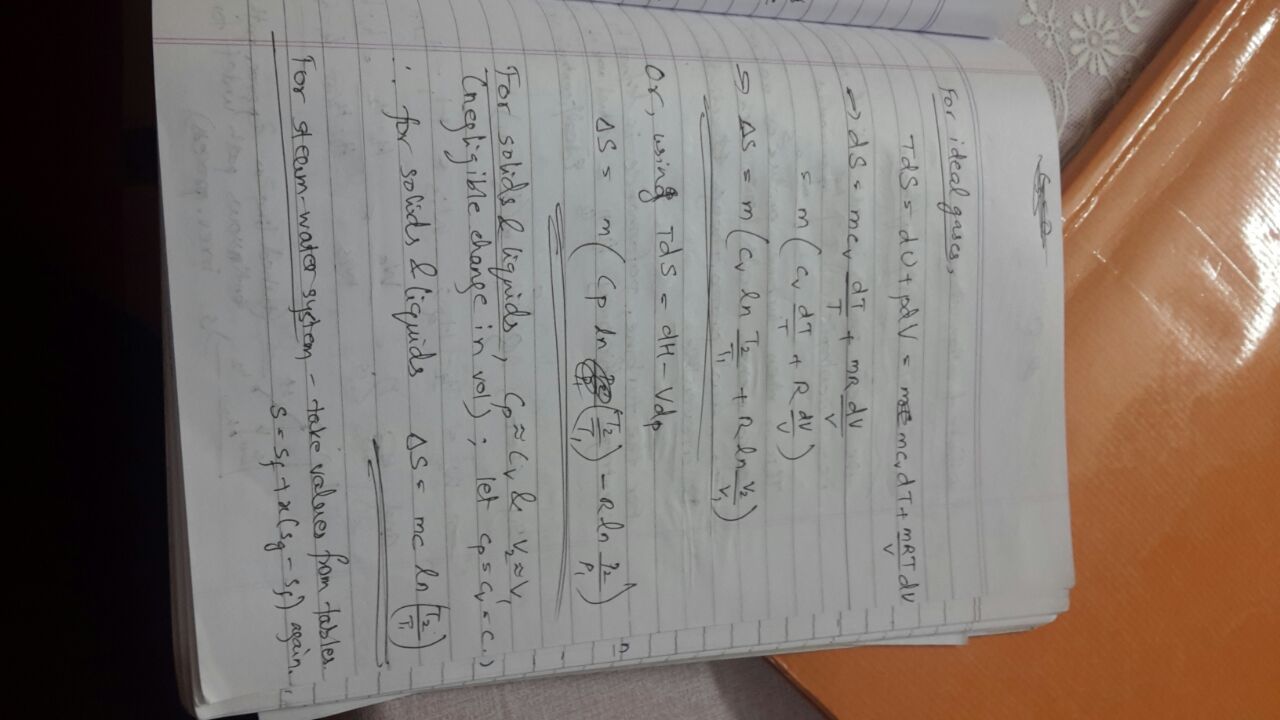 For ideal gases,
TdS = dU + pdV = mcvdT + mRT/V dV
→ dS = mcv dT/T + mR dV/V
= m(cv dT/T + R dV/V)
⇒ ΔS = m(cv ln T2/T1 + R ln V2/V1)
Or, using TdS = dH - Vdp
ΔS = m(cp ln (T2/T1) - R ln P2/P1)
For solids & liquids, cp ≈ cv & V2 ≈ V1
(negligible change in vol); let cp = cv = c
∴ for solids & liquids ΔS = mc ln(T2/T1)
For steam-water system - take values from tables.
s = sf + x(sg - sf) again.